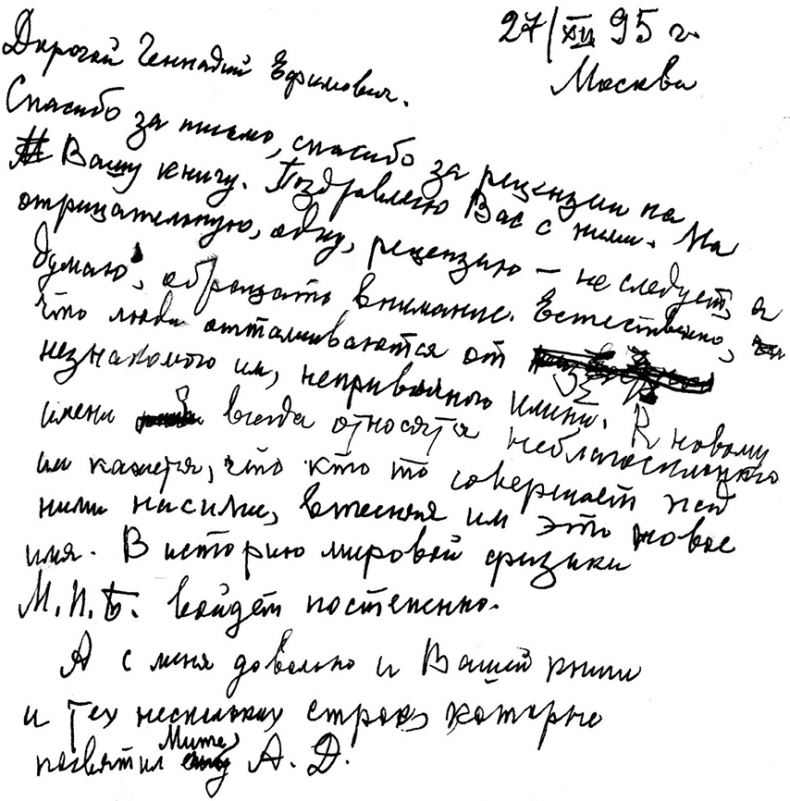 27/XII 95 г.
Москва
Дорогой Геннадий Ефимович.
Спасибо за письмо, спасибо за рецензии на
Вашу книгу. Поздравляю Вас с ними. На
отрицательную, одну, рецензию — не следует, я
думаю, обращать внимание. Естественно,
что люди отталкиваются от
незнакомого им, непривычного имени. К новому
имени всегда относятся неблагосклонно
им кажется, что кто то совершает над
ними насилие, втесняя им это новое
имя. В историю мировой физики
М.П.Б. войдёт постепенно.
А с меня довольно и Вашей книги
и тех нескольких строк, которые
посвятил Мите, А.Д.